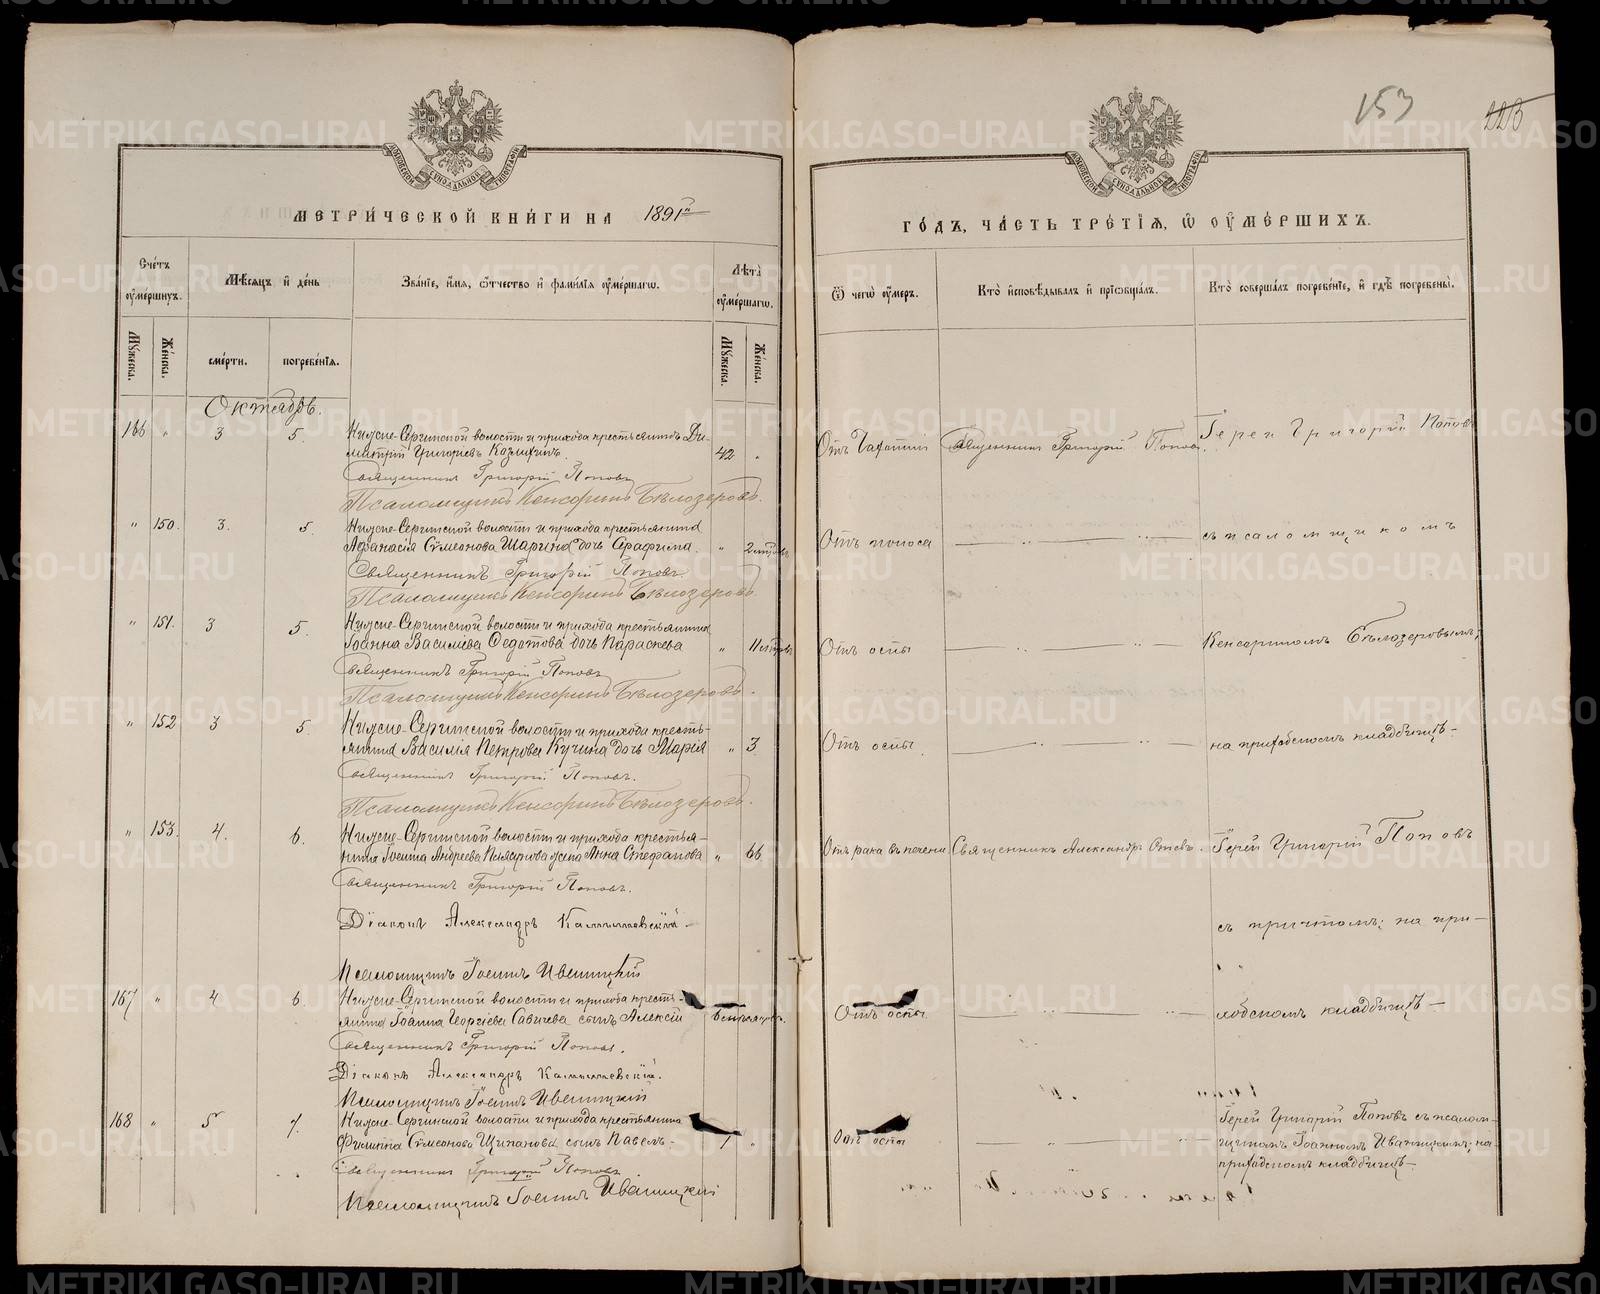 153
223
МЕТРИ́ЧЕСКОЙ КНИ́ГИ НА 1891й
ГО́ДЪ, ЧА́СТЬ ТРЕ́ТІѦ, Ѡ҆ ОУ҆МЕ́РШИХЪ.
Сче́тъ оу҆ме́ршихъ.
Мѣ́сѧцъ и҆ де́нь
Зва́нїе, и҆́мѧ, ѻ҆́тчество и҆ фами́лїѧ оу҆ме́ршагѡ.
Лѣ́та оу҆ме́ршагѡ.
Ѿ чегѡ̀ оу҆́меръ.
Кто̀ и҆сповѣ́дывалъ и҆ прїѡбща́лъ.
Кто̀ соверша́лъ погребе́нїе, и҆ гдѣ̀ погребены̀.
Мꙋ́жеска.
Же́нска.
сме́рти.
погребе́нїѧ.
Мꙋ́жеска.
Же́нска.
Октябрь.
166 " 3 5. Нижне-Сергинской волости и прихода крестьянинъ Ди-
митрій Григорьевъ Казымкинъ. 42 "
Священникъ Григорій Поповъ
Псаломщикъ Кенсоринъ Бѣлозеровъ.
Священникъ Григорій Поповъ.
Іерей Григорій Поповъ
" 150. 3. 5. Нижне-Сергинской волости и прихода крестьянина
Аѳанасія Сѵмеонова Шарина дочь Серафима. "
Священникъ Григорій Поповъ.
Псаломщикъ Кенсоринъ Бѣлозеровъ.
Отъ поноса
съ псаломщикомъ
" 151. 3 5. Нижне-Сергинской волости и прихода крестьянина
Іоанна Василіева Ѳедотова дочь Параскева "
Священникъ Григорій Поповъ
Псаломщикъ Кенсоринъ Бѣлозеровъ.
Отъ оспы
Кенсориномъ Бѣлозеровымъ,
" 152 3 5. Нижне-Сергинской волости и прихода кресть-
янина Василія Петрова Кучина дочь Марія " 3
Священникъ Григорій Поповъ.
Псаломщикъ Кенсоринъ Бѣлозеровъ.
Отъ оспы.
на приходскомъ кладбищѣ.
" 153. 4. 6. Нижне-Сергинской волости и прихода крестья-
нина Іоанна Андреева жена Анна Стефанова " 66
Священникъ Григорій Поповъ.
Діаконъ Александръ
Псаломщикъ Іоаннъ Иваницкій
Отъ рака въ печени
Священникъ Александръ
Іерей Григорій Поповъ
съ причтомъ; на при-
167 " 4 6. Нижне-Сергинской волости и прихода кресть-
янина Іоанна Георгіева Савичева сынъ Алексій
Священникъ Григорій Поповъ.
Діаконъ Александръ
Псаломщикъ Іоаннъ Иваницкій
Отъ оспы.
ходскомъ кладбищѣ
168 " 5 7. Нижне-Сергинской волости и прихода крестьянина
Филиппа Сѵмеонова Щипанова сынъ Павелъ 1 "
Священникъ Григорій Поповъ
Псаломщикъ Іоаннъ Иваницкій
Отъ оспы
Іерей Григорій Поповъ съ псалом-
щикомъ Іоанномъ Иваницкимъ; на
приходскомъ кладбищѣ
METRIKI.GASO-URAL.RU